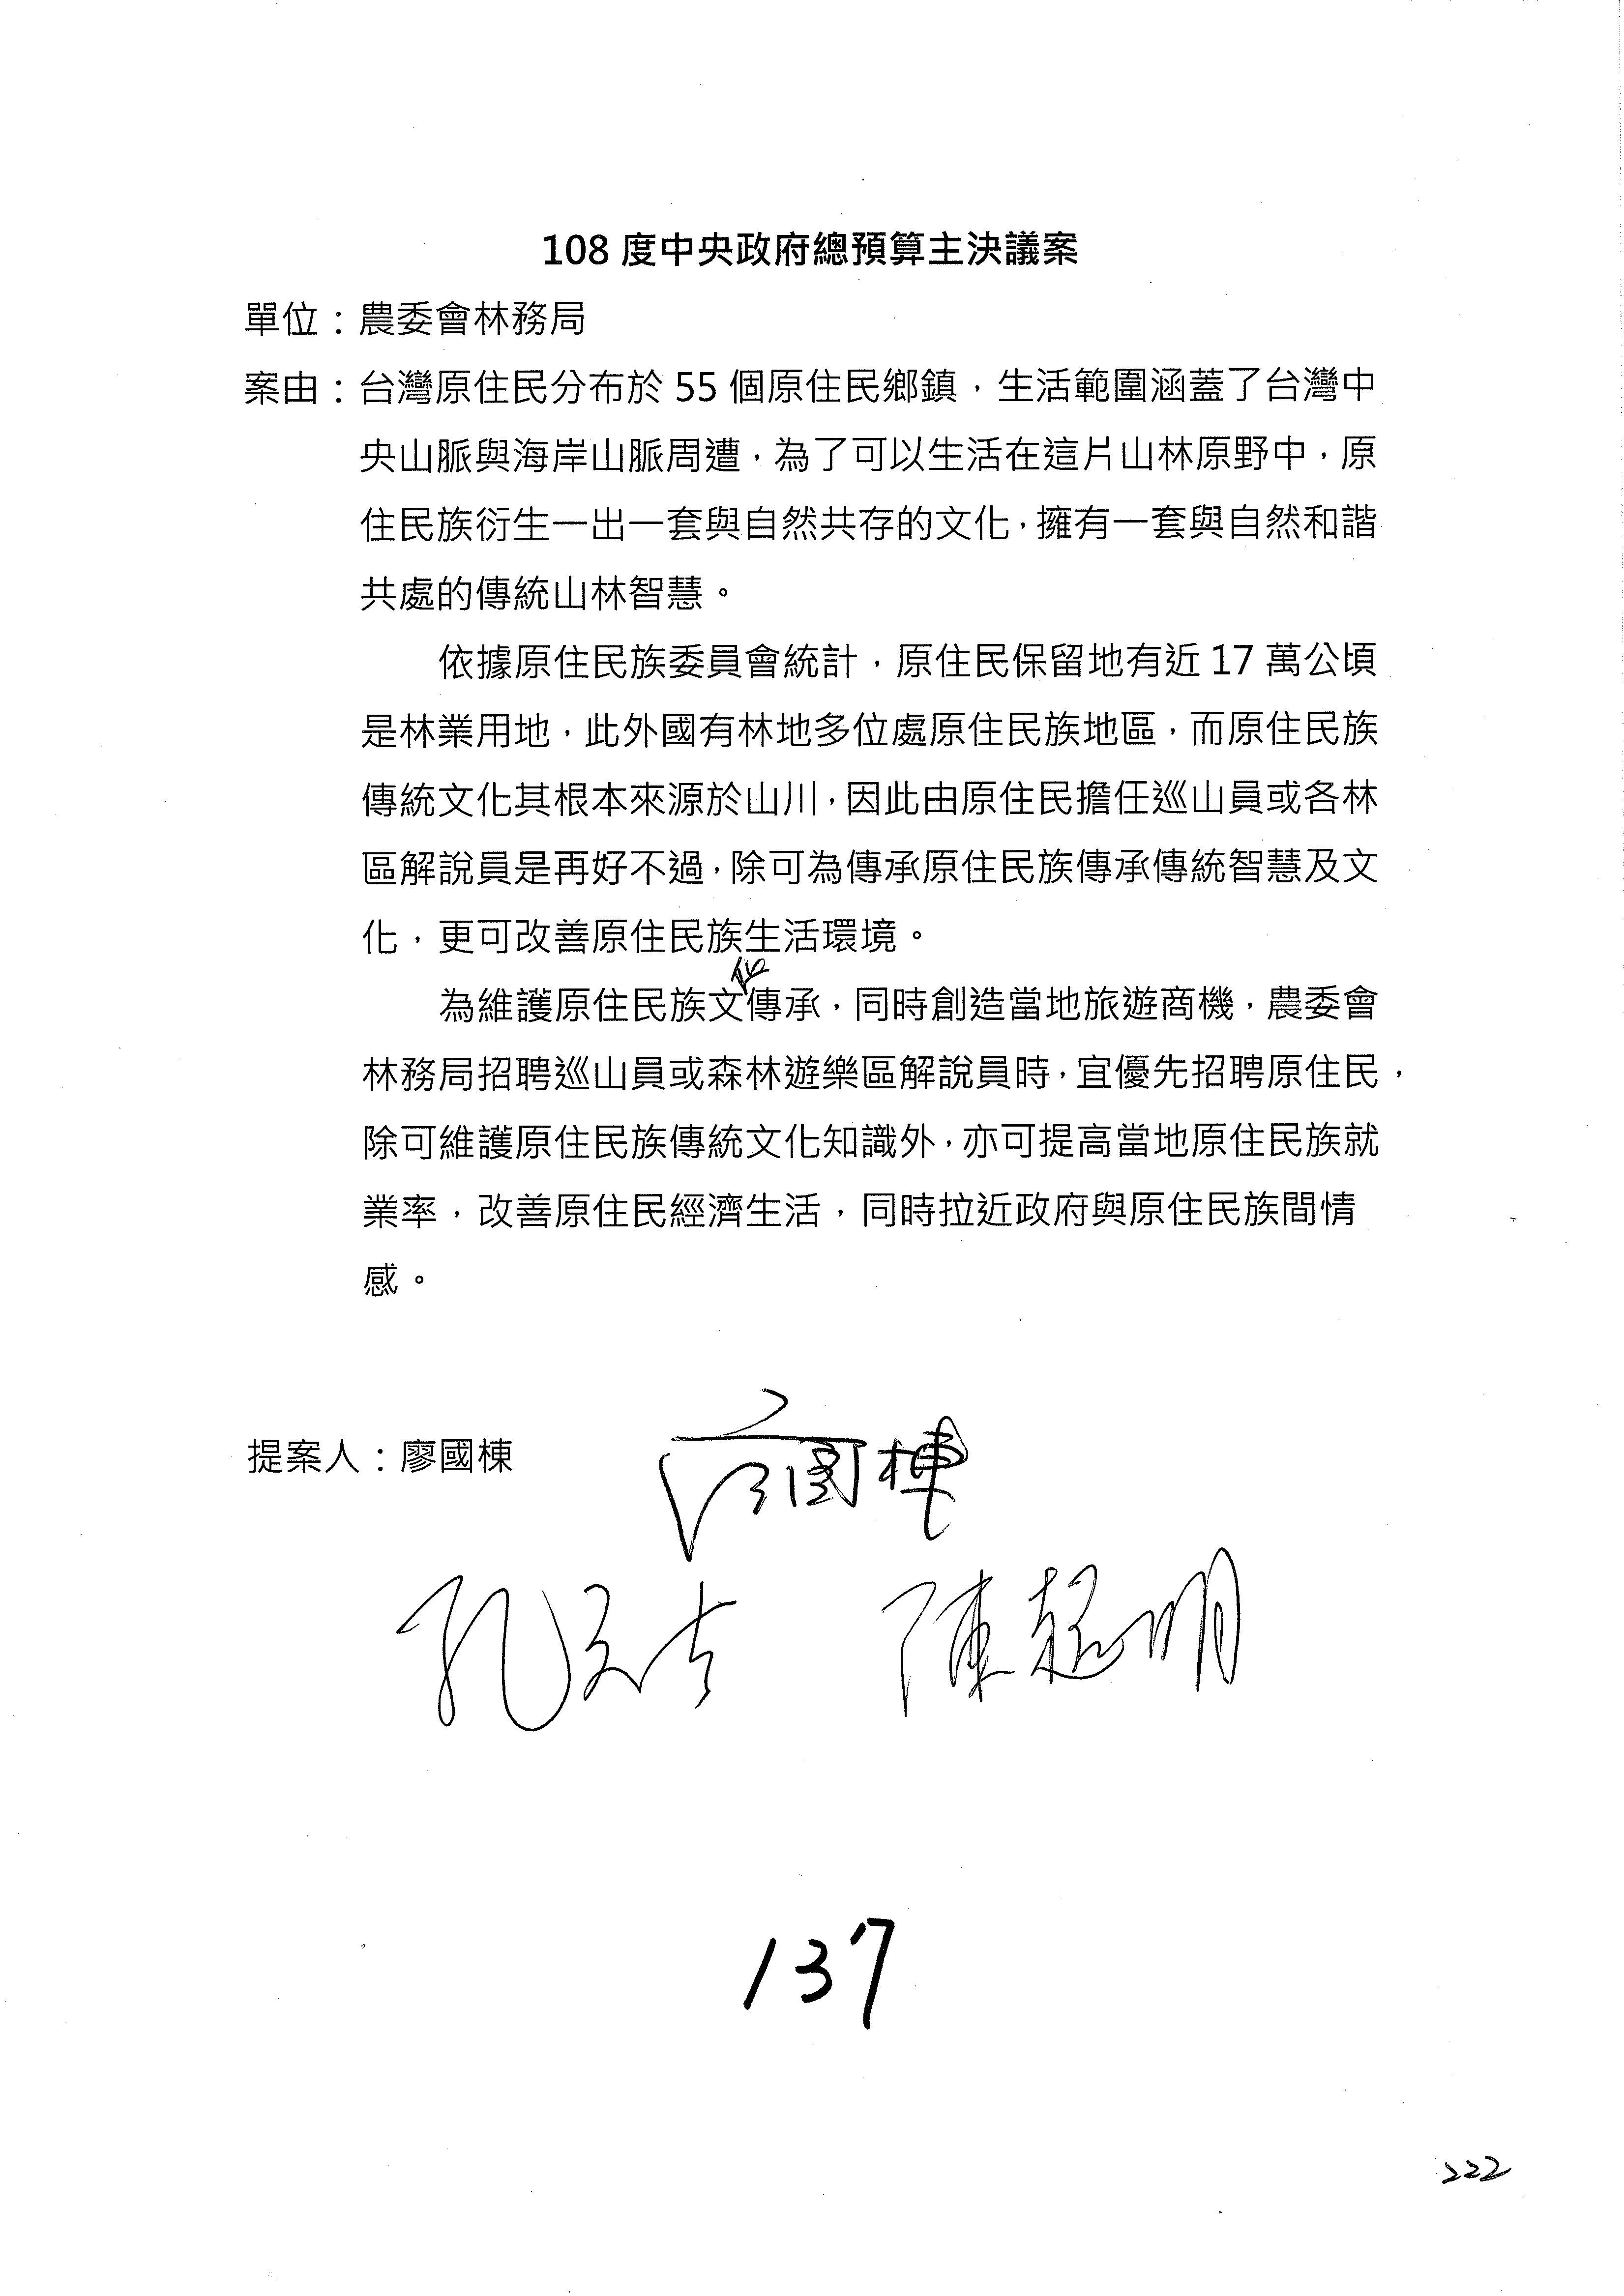 108 度中央政府總預算主決議案
單位：農委會林務局
案由：台灣原住民分布於 55 個原住民鄉鎮，生活範圍涵蓋了台灣中
央山脈與海岸山脈周遭，為了可以生活在這片山林原野中，原
住民族衍生一出一套與自然共存的文化，擁有一套與自然和諧
共處的傳統山林智慧。
依據原住民族委員會統計，原住民保留地有近 17 萬公頃
是林業用地，此外國有林地多位處原住民族地區，而原住民族
傳統文化其根本來源於山川，因此由原住民擔任巡山員或各林
區解說員是再好不過，除可為傳承原住民族傳承傳統智慧及文
化，更可改善原住民族生活環境。
為維護原住民族文化傳承，同時創造當地旅遊商機，農委會
林務局招聘巡山員或森林遊樂區解說員時，宜優先招聘原住民，
除可維護原住民族傳統文化知識外，亦可提高當地原住民族就
業率，改善原住民經濟生活，同時拉近政府與原住民族間情
感。
提案人：廖國棟 廖國棟
孔文吉 陳超明
137
222